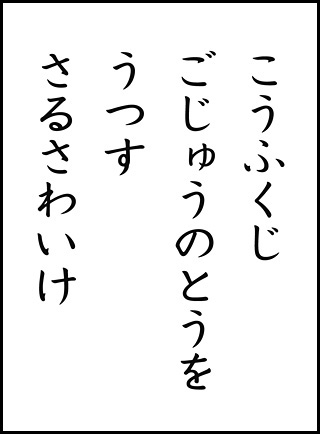 こうふくじ
ごじゅうのとうを
うつす
さるさわいけ